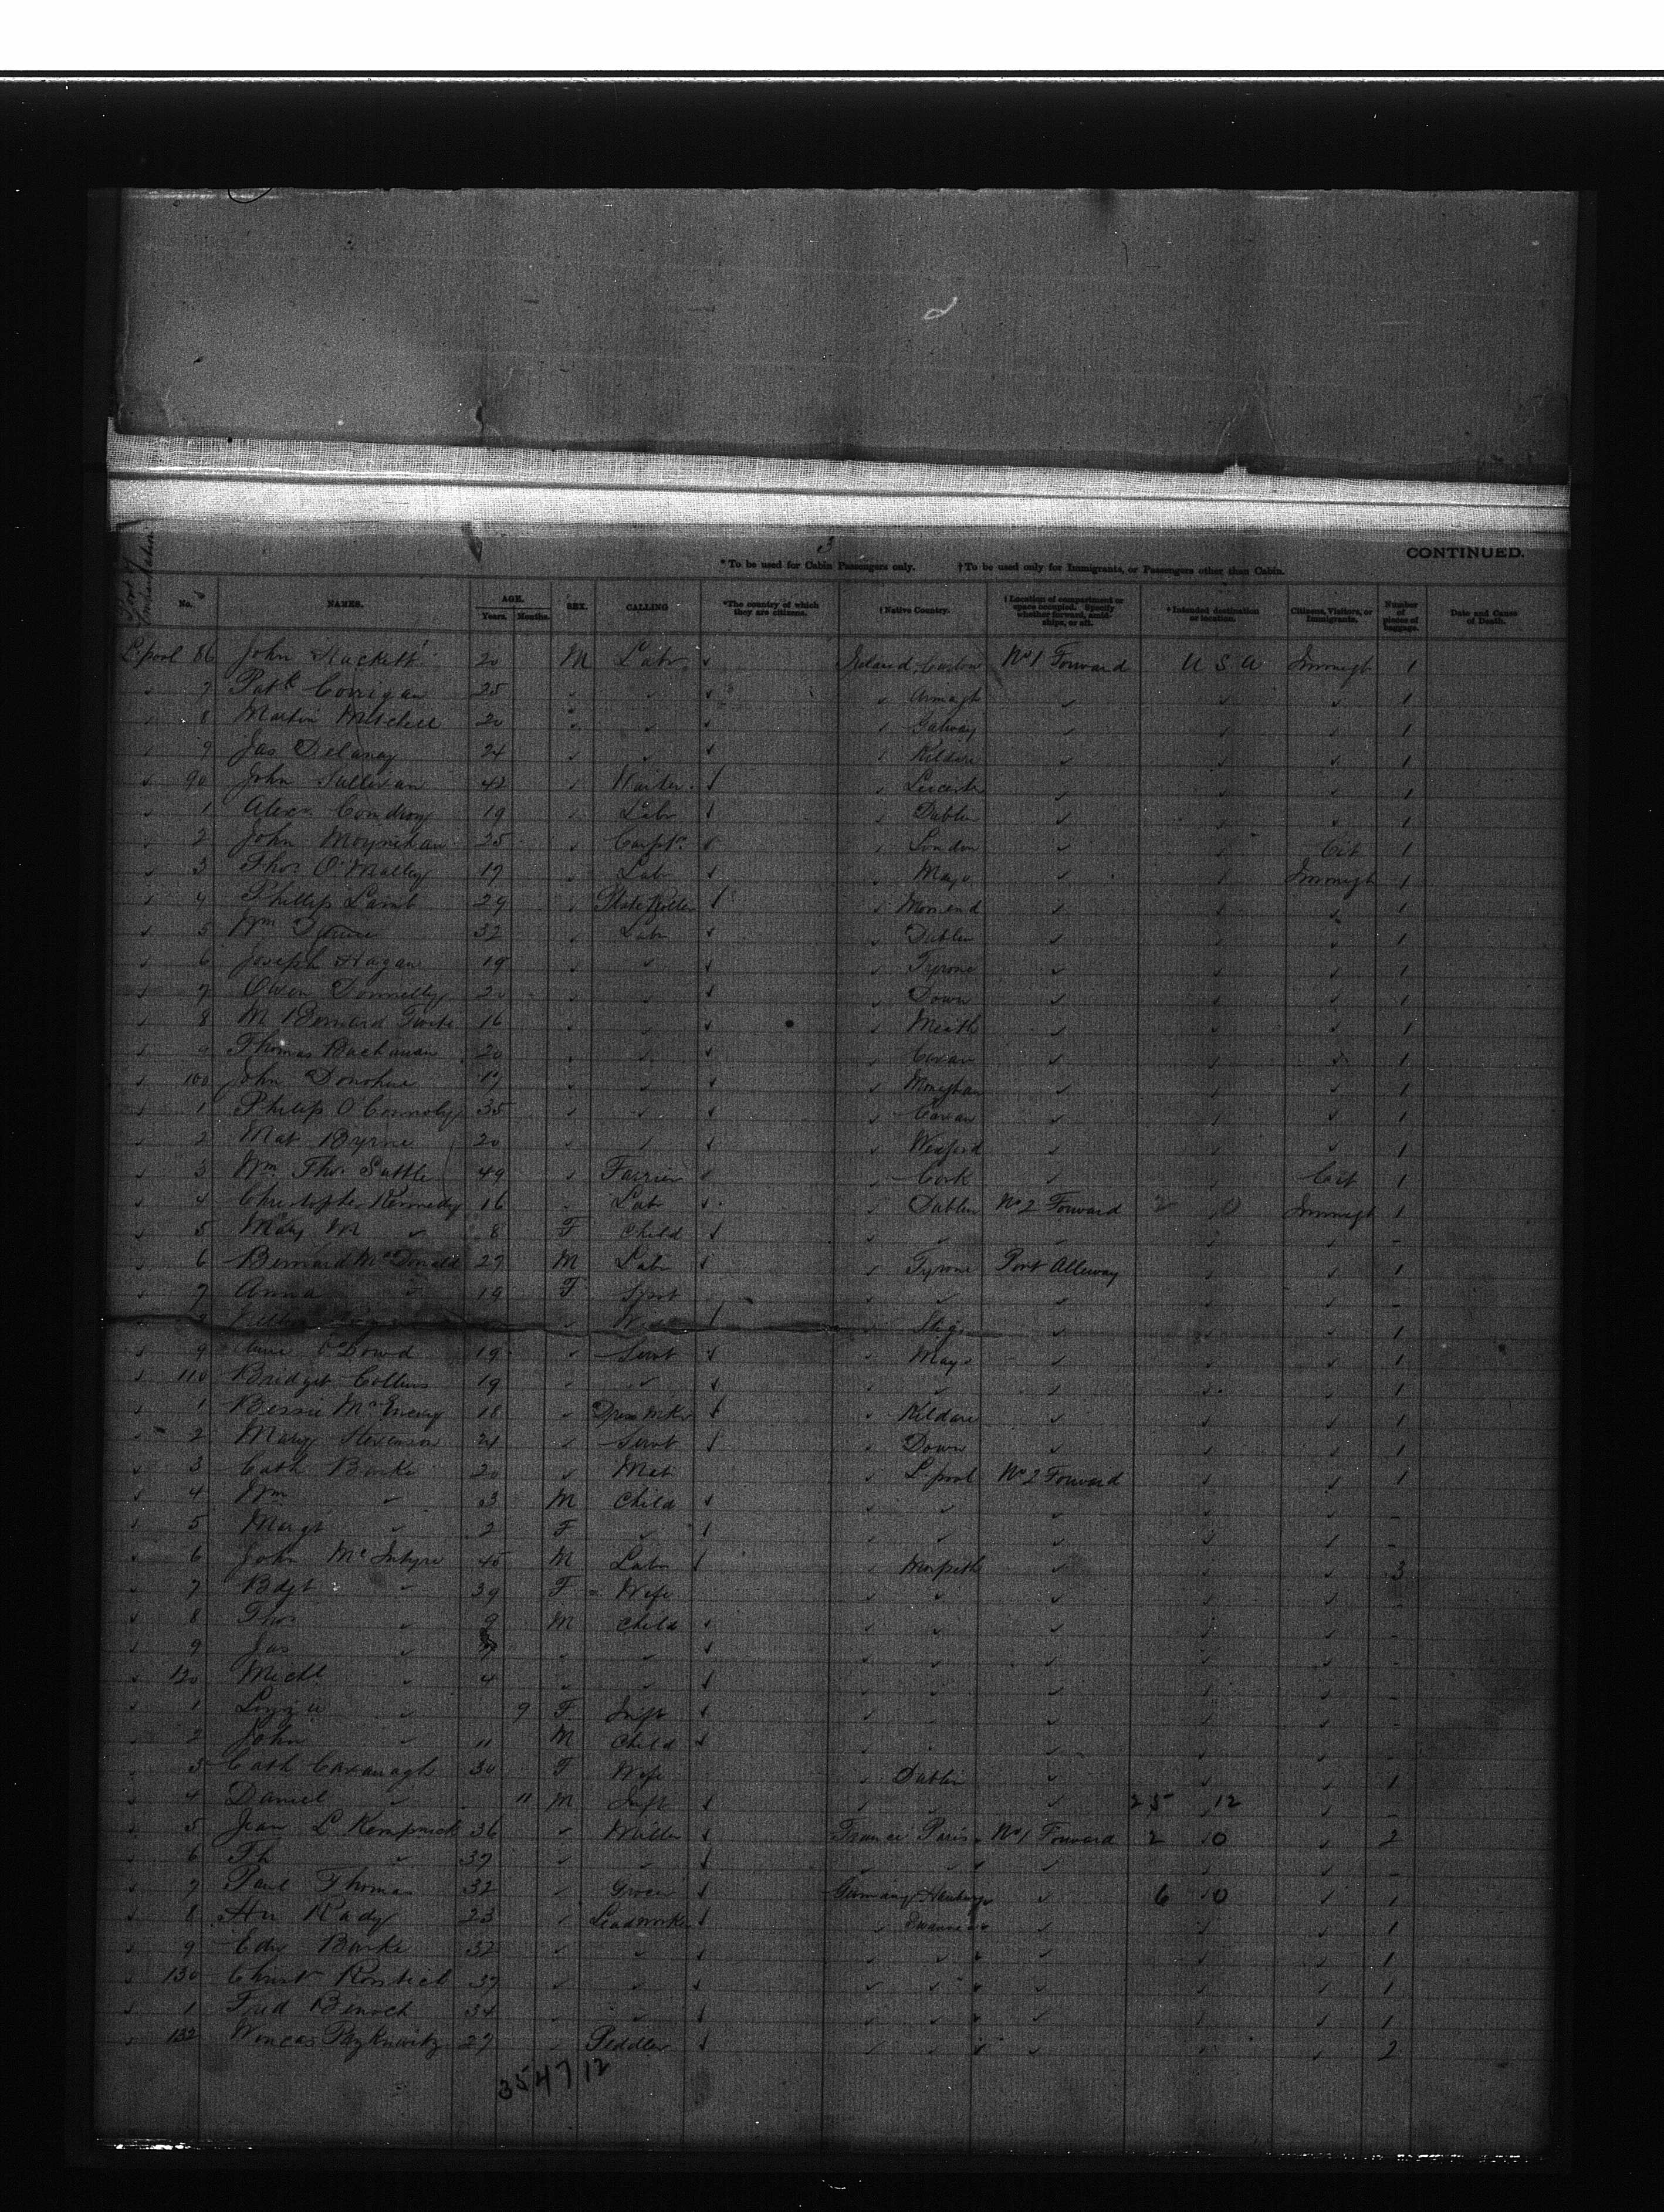 3
CONTINUED.
*To be used for Cabin Passengers only. †To be used only for Immigrants, or Passengers other than Cabin.
Port of Embarkation
No. NAMES. AGE. Years. Months. SEX. CALLING *The country of which they are citizens. †Native Country. †Location of compartment or space occupied. Specify whether forward, amidships, or aft. *Intended destination or location. Citizens, Visitors, or Immigrants. Number of pieces of baggage. Date and Cause of Death.
L'pool 86 John Hackett 20 M Labr Ireland No 1 Forward U S A Immigt 1
7 Patk Corrigan 25 Armagh 1
8 Martin Mitchell 20 Galway 1
9 Jas Delaney 24 Kildare 1
90 John Sullivan 42 1
1 Alexr 19 Labr Dublin 1
2 John Moynihan 25 Carptr London Cit 1
3 Thos O'Malley 17 Labr Mayo Immigt 1
4 Phillip Lamb 29 1
5 Wm 32 Labr Dublin 1
6 Joseph Hagan 19 Tyrone 1
7 Owen Donnelly 20 Down 1
8 M Bernard 16 Meath 1
9 Thomas Buchanan 20 Cavan 1
100 John Donohue 17 Monaghan 1
1 Philip O'Connoly 35 Cavan 1
2 Mat Byrne 20 Wexford 1
3 Wm Thos Suttle 49 Farrier Cork Cit 1
4 Christopher Kennedy 16 Labr Dublin No 2 Forward 2 0 Immigt 1
5 Mary M 8 F Child -
6 Bernard McDonald 27 M Labr Tyrone Port Alleway 1
7 Anna 19 F -
8 Sligo 1
9 Annie O'Dowd 19 Servt Mayo 1
110 Bridget Collins 19 1
1 Bessie 18 Dress Mkr Kildare 1
2 Mary Stevenson 21 Servt Down 1
3 Cath Burke 20 Mat L'pool No 2 Forward 1
4 Wm 3 M Child -
5 Margt 2 F -
6 John McIntyre 45 M Labr Morpeth 3
7 Bdgt 39 F Wife
8 Thos 9 M Child -
9 Jas 7 -
120 Michl 4 -
1 Lizzie 9 F Inft -
2 John 11 M Child -
3 Cath Cavanagh 30 F Wife Dublin 1
4 Daniel 11 M Inft 25 12 -
5 Jean L 36 Miller France Paris No 1 Forward 2 10 2
6 37 -
7 Paul Thomas 32 Grocer Germany Hamburg 6 10 1
8 23 Leadworker 1
9 Edw Burke 32 1
130 Christ 37 1
1 Fred 34 1
132 27 Peddler 2
3547 12